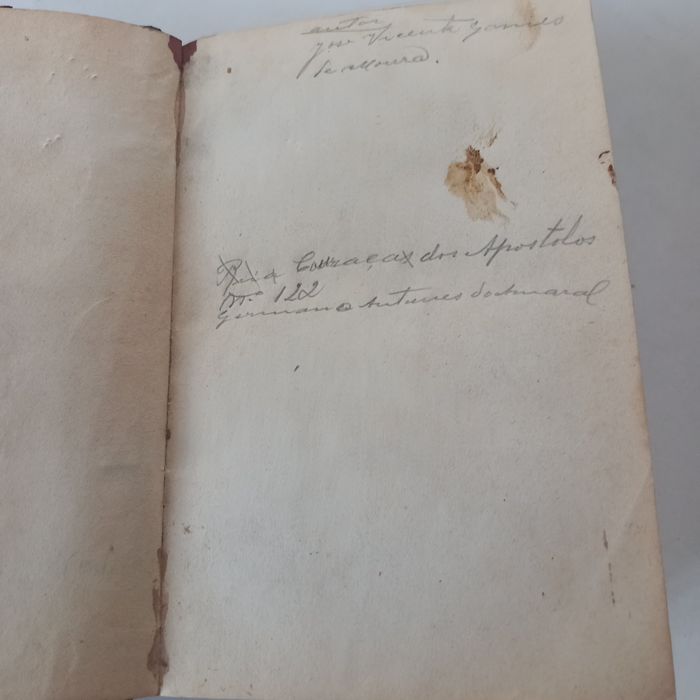 autor
José Vicente Gomes
de Moura.
Rua Couraça dos Apostolos
Nº 122
Germano Antunes do Amaral